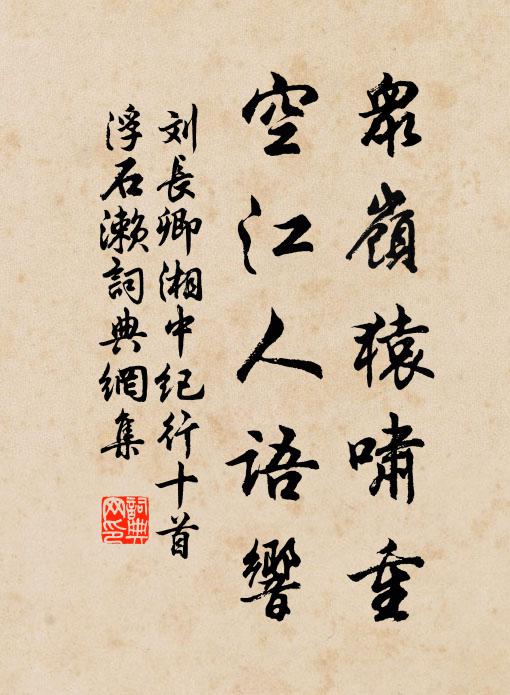 衆嶺猿嘯重
空江人語響
刘長卿湘中纪行十首
浮石瀨詞典網集
詞典网印